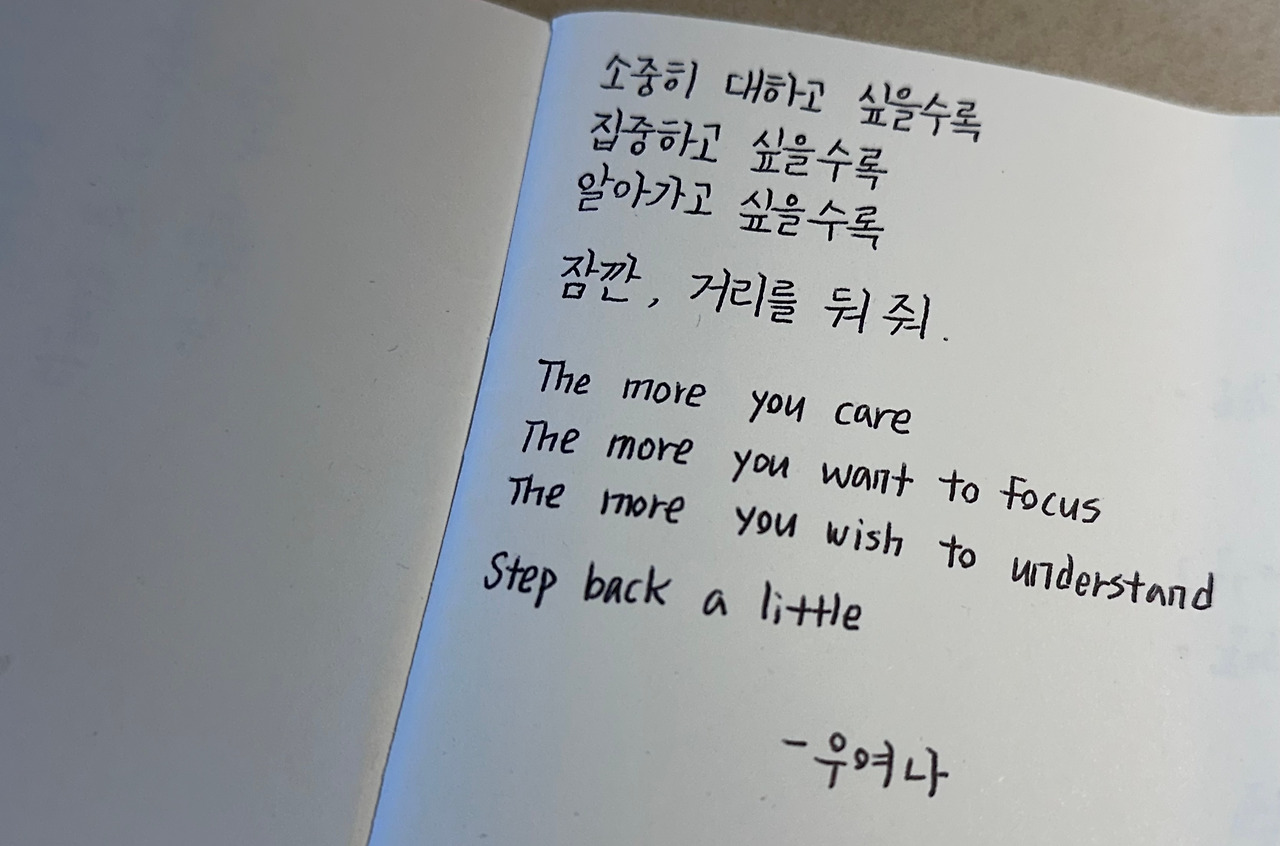 소중히 대하고 싶을수록
집중하고 싶을수록
알아가고 싶을수록
잠깐, 거리를 둬 줘.
The more you care
The more you want to focus
The more you wish to understand
Step back a little
- 우여나